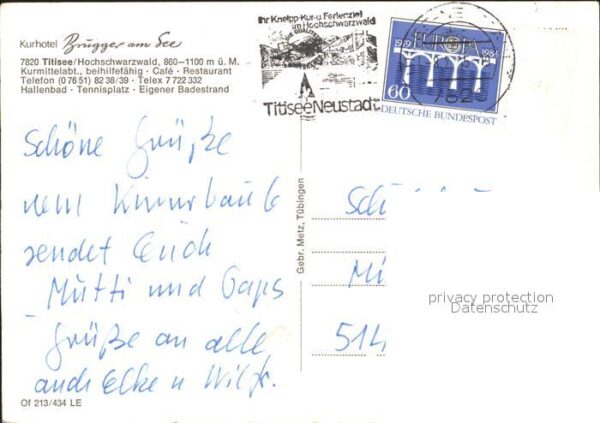 Kurhotel Brugger am See
7820 Titisee/Hochschwarzwald, 860–1100 m ü. M.
Kurmittelabt., beihilfefähig · Café · Restaurant
Telefon (0 76 51) 82 38/39 · Telex 7 722 332
Hallenbad · Tennisplatz · Eigener Badestrand
Ihr Kneipp-Kur-u. Ferienziel
im Hochschwarzwald
Titisee Neustadt
1959 EUROPA 1984
60
DEUTSCHE BUNDESPOST
7820
Schöne Grüße
sendet Euch
Mutti und
Grüße an alle
auch Elke u
Gebr. Metz, Tübingen
Sch
Mi
514
privacy protection
Datenschutz
Of 213/434 LE